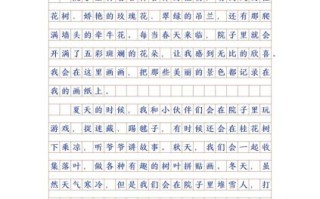 花树、娇艳的玫瑰花、翠绿的吊兰、还有那爬
满墙头的牵牛花。每当春天来临，院子里就会
开满了五彩斑斓的花朵，让我感到无比的欣喜。
我会在这里画画，把那些美丽的景色都记录在
我的画纸上。
夏天的时候，我和小伙伴们会在院子里玩
游戏、捉迷藏、踢毽子，有时还会在桂花树
下乘凉，听爷爷讲故事。秋天，我们会一起收
集落叶，做各种有趣的树叶拼贴画。冬天，虽
然天气寒冷，但是我们会在院子里堆雪人，打